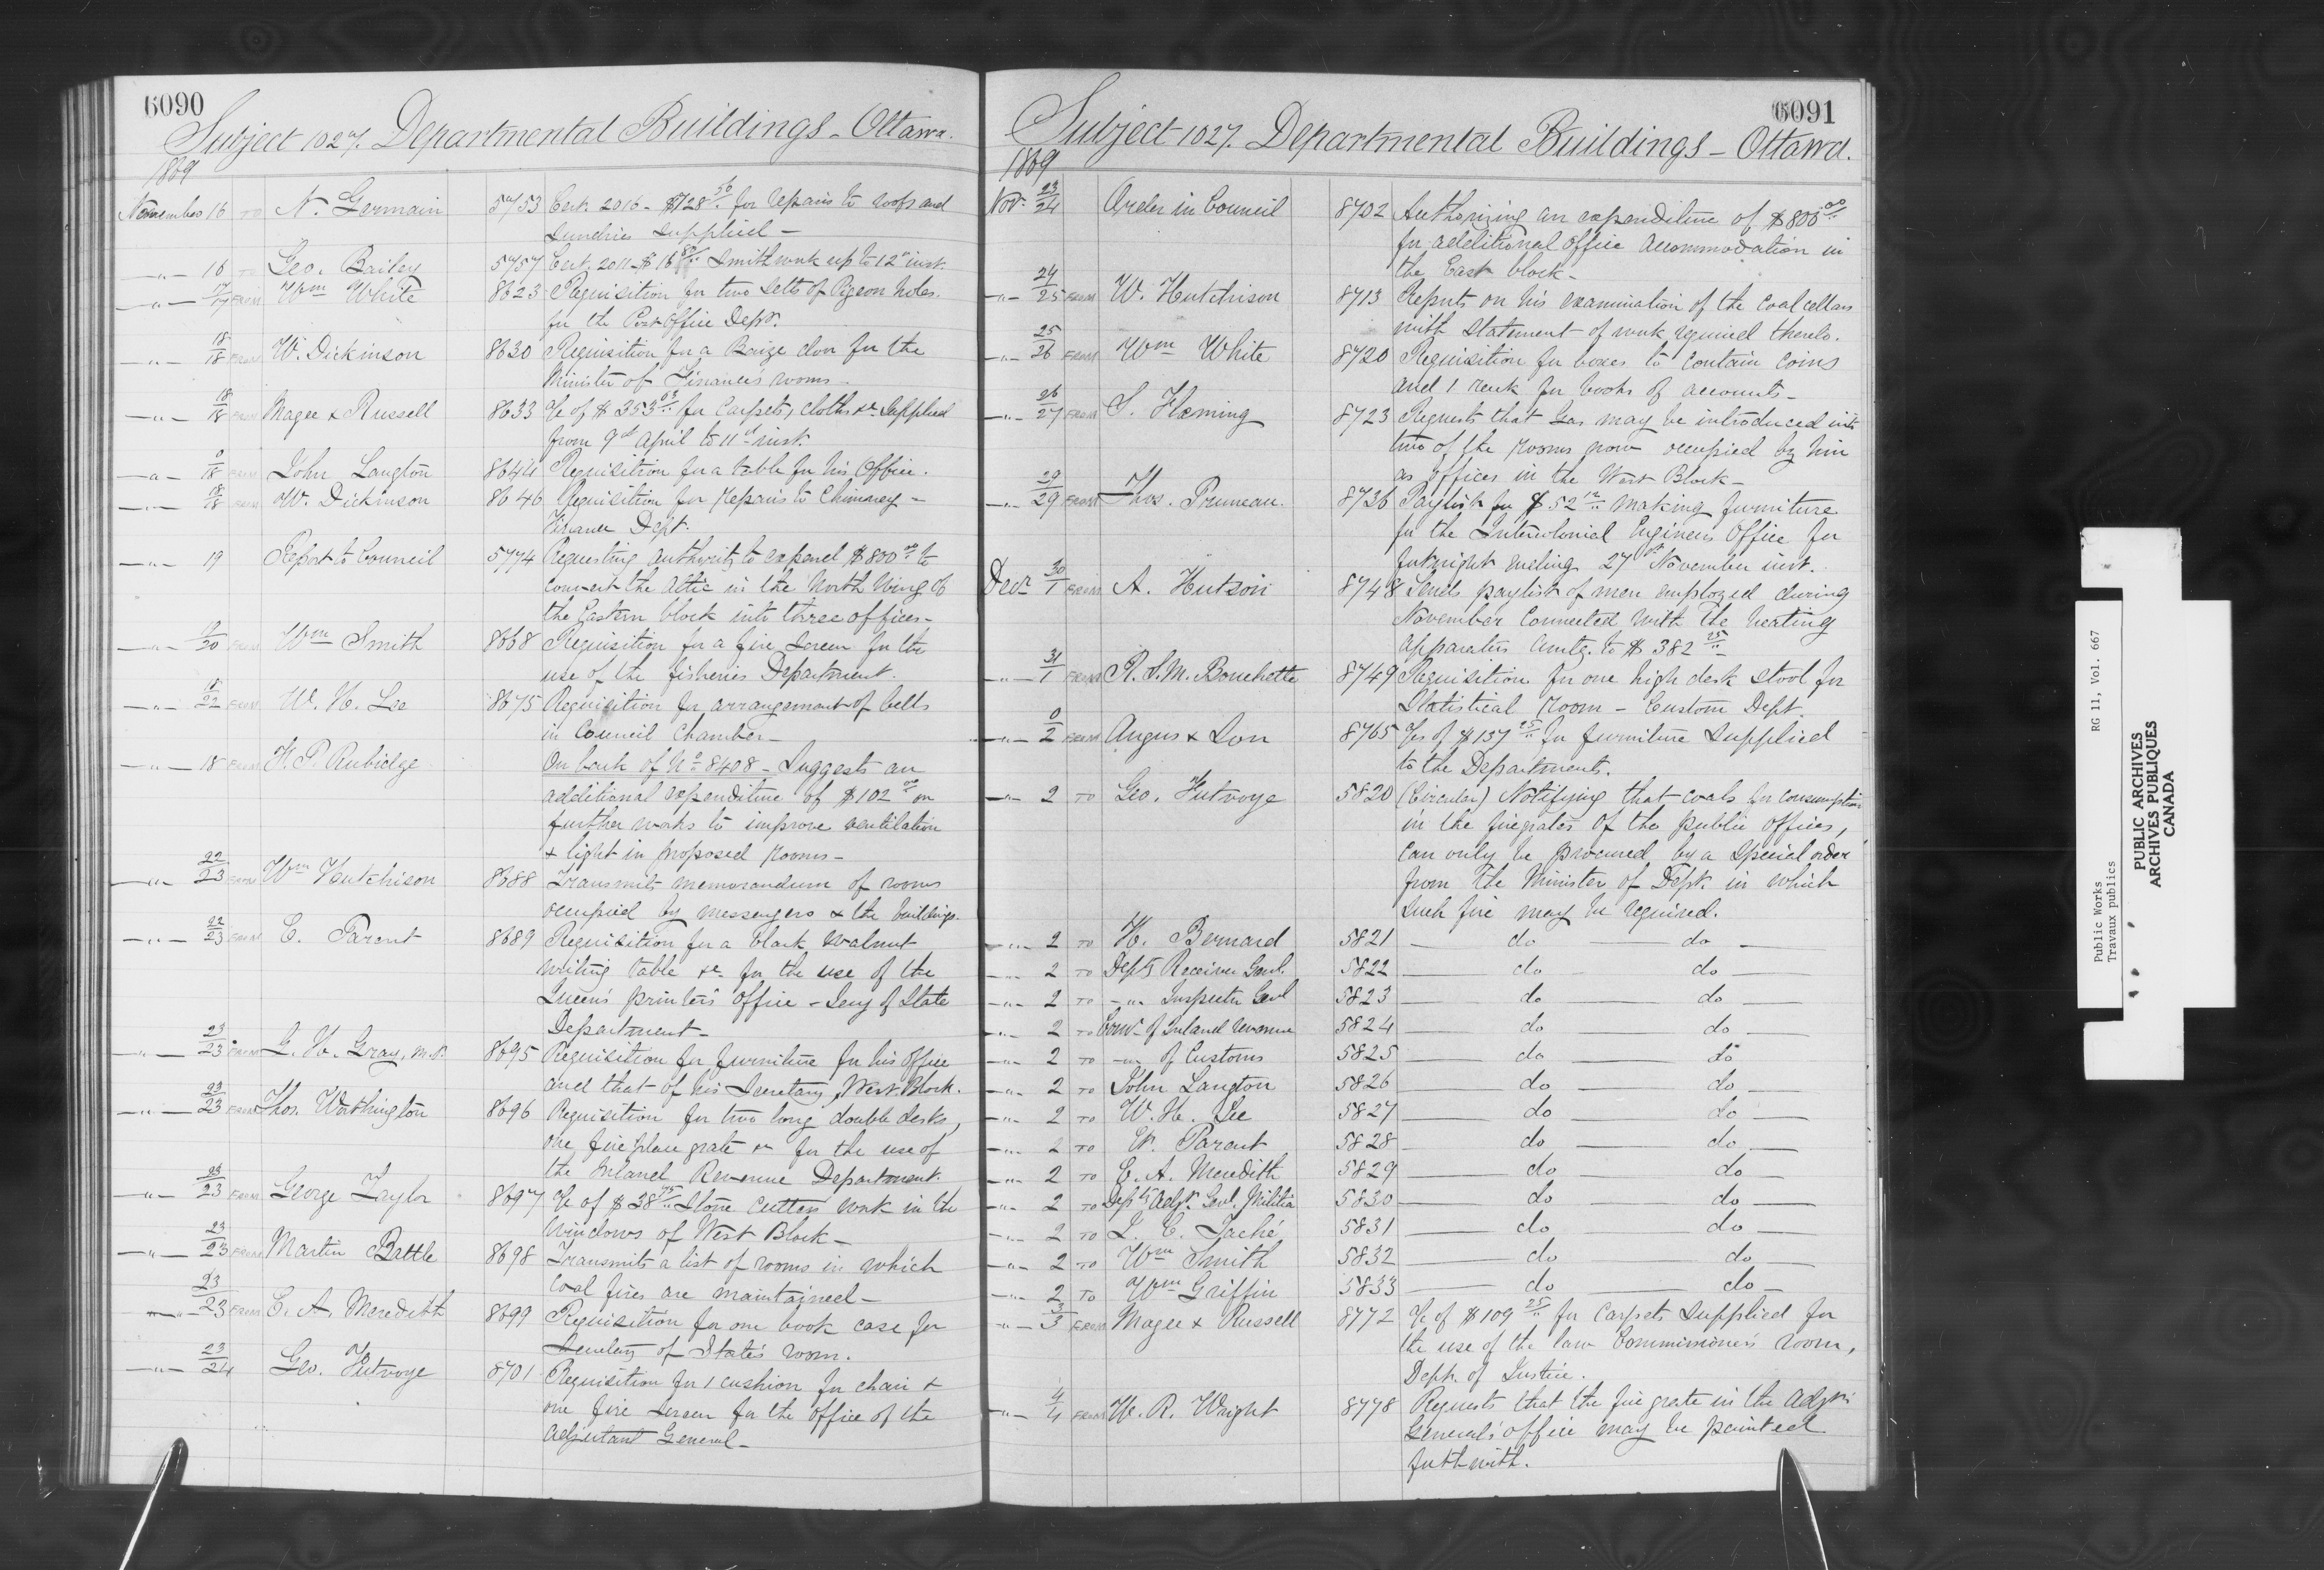 6090
Subject 1027. Departmental Buildings - Ottawa.
1869
November 16 TO N. Germain 5753 Cert. 2016 - $728 50/.. for repairs to roofs and
Sundries supplied -
-"- 16 TO Geo. Bailey 5757 Cert. 2011 - $16 80/.. Smithwork up to 12" inst.
-"- 17/17 FROM Wm White 8623 Requisition for two Setts of Pigeon holes.
for the Post Office Dept.
-"- 18/18 FROM W. Dickinson 8630 Requisition for a Baize door for the
Minister of Finance's rooms -
-"- 18/18 FROM Magee & Russell 8633 A/c of $353 03/.. for Carpets, Cloths &c. Supplied
from 9th April to 11th inst.
-"- 0/18 FROM John Langton 8644 Requisition for a table for his Office.
-"- 18/18 FROM W. Dickinson 8646 Requisition for repairs to Chimney -
Finance Dept.
-"- 19 Report to Council 5774 Requesting authority to expend $800 00/.. to
Convert the attic in the North Wing of
the Eastern block into three offices -
-"- 19/20 FROM Wm Smith 8668 Requisition for a fire screen for the
use of the fisheries Department.
-"- 18/22 FROM W. H. Lee 8675 Requisition for arrangement of bells
in Council Chamber -
-"- 18 FROM F. P. Rubidge On back of No 8408 - Suggests an
additional expenditure of $102 00/.. on
further works to improve ventilation
& light in proposed rooms -
-"- 22/23 FROM Wm Hutchison 8688 Transmits memorandum of rooms
occupied by messengers & the buildings.
-"- 22/23 FROM E. Parent 8689 Requisition for a black walnut
writing table &c. for the use of the
Queen's printer's Office - Secy of State
Department -
-"- 23/23 FROM J. H. Gray, M.P. 8695 Requisition for furniture for his office
and that of his Secretary, West Block.
-"- 23/23 FROM Thos. Worthington 8696 Requisition for two long double desks,
one fire place grate &c for the use of
the Inland Revenue Department.
-"- 23/23 FROM George Taylor 8697 A/c of $38 75/.. Stone Cutters work in the
windows of West Block -
-"- 23/23 FROM Martin Battle 8698 Transmits a list of rooms in which
Coal fires are maintained -
-"- 23/23 FROM E. A. Meredith 8699 Requisition for one book case for
Secretary of State's room.
-"- 23/24 Geo. Futvoye 8701 Requisition for 1 cushion for chair &
one fire screen for the office of the
Adjutant General -
6091
Subject 1027. Departmental Buildings - Ottawa.
1869
Nov. 23/24 Order in Council 8702 Authorizing an expenditure of $800 00/..
for additional office accommodation in
the East block -
-"- 24/25 FROM W. Hutchison 8713 Reports on his examination of the Coal cellars
with statement of work required thereto.
-"- 25/26 FROM Wm White 8720 Requisition for boxes to contain coins
and 1 rack for books of accounts -
-"- 26/27 FROM S. Fleming 8723 Requests that Gas may be introduced into
two of the rooms now occupied by him
as offices in the West Block -
-"- 29/29 FROM Thos. Pruneau. 8736 Paylist for $52 12/.. making furniture
for the Intercolonial Engineers Office for
fortnight ending 27th November inst.
Decr 30/1 FROM A. Hutson 8748 Sends paylist of men employed during
November connected with the heating
apparatus amtg. to $382 25/..
-"- 31/1 FROM R. S. M. Bouchette 8749 Requisition for one high desk stool for
Statistical Room - Custom Dept.
-"- 0/2 FROM Angus & Son 8765 A/cs of $137 25/.. for furniture supplied
to the Departments.
-"- 2 TO Geo. Futvoye 5820 (Circular) Notifying that coals for consumption
in the firegrates of the public offices,
can only be procured by a special order
from the Minister of Dept. in which
such fire may be required.
-"- 2 TO H. Bernard 5821 - do - do -
-"- 2 TO Depty Receiver Genl. 5822 - do - do -
-"- 2 TO -"- Inspector Genl 5823 - do - do -
-"- 2 TO Comr. of Inland Revenue 5824 - do - do -
-"- 2 TO -"- of Customs 5825 - do - do
-"- 2 TO John Langton 5826 - do - do -
-"- 2 TO W. H. Lee 5827 - do - do -
-"- 2 TO E. Parent 5828 - do - do -
-"- 2 TO E. A. Meredith 5829 - do - do -
-"- 2 TO Depty Adjt. Genl. Militia 5830 - do - do -
-"- 2 TO J. C. Taché 5831 - do - do -
-"- 2 TO Wm Smith 5832 - do - do -
-"- 2 TO Wm Griffin 5833 - do - do -
-"- 3/3 FROM Magee & Russell 8772 A/c of $109 25/.. for Carpets supplied for
the use of the law Commissioner's room,
Dept. of Justice.
-"- 4/4 FROM W. R. Wright 8778 Requests that the fire grate in the Adjt.
General's office may be painted
forthwith.
Public Works RG 11, Vol. 667
Travaux publics
PUBLIC ARCHIVES
ARCHIVES PUBLIQUES
CANADA